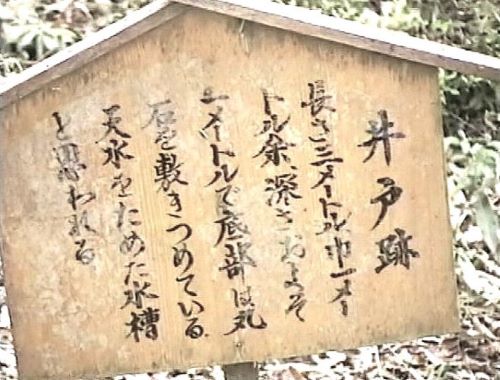 井戸跡
長さ三メートル巾一メー
トル余、深さおよそ
一メートルで底部は丸
石を敷きつめている
天水をためた水槽
と思われる